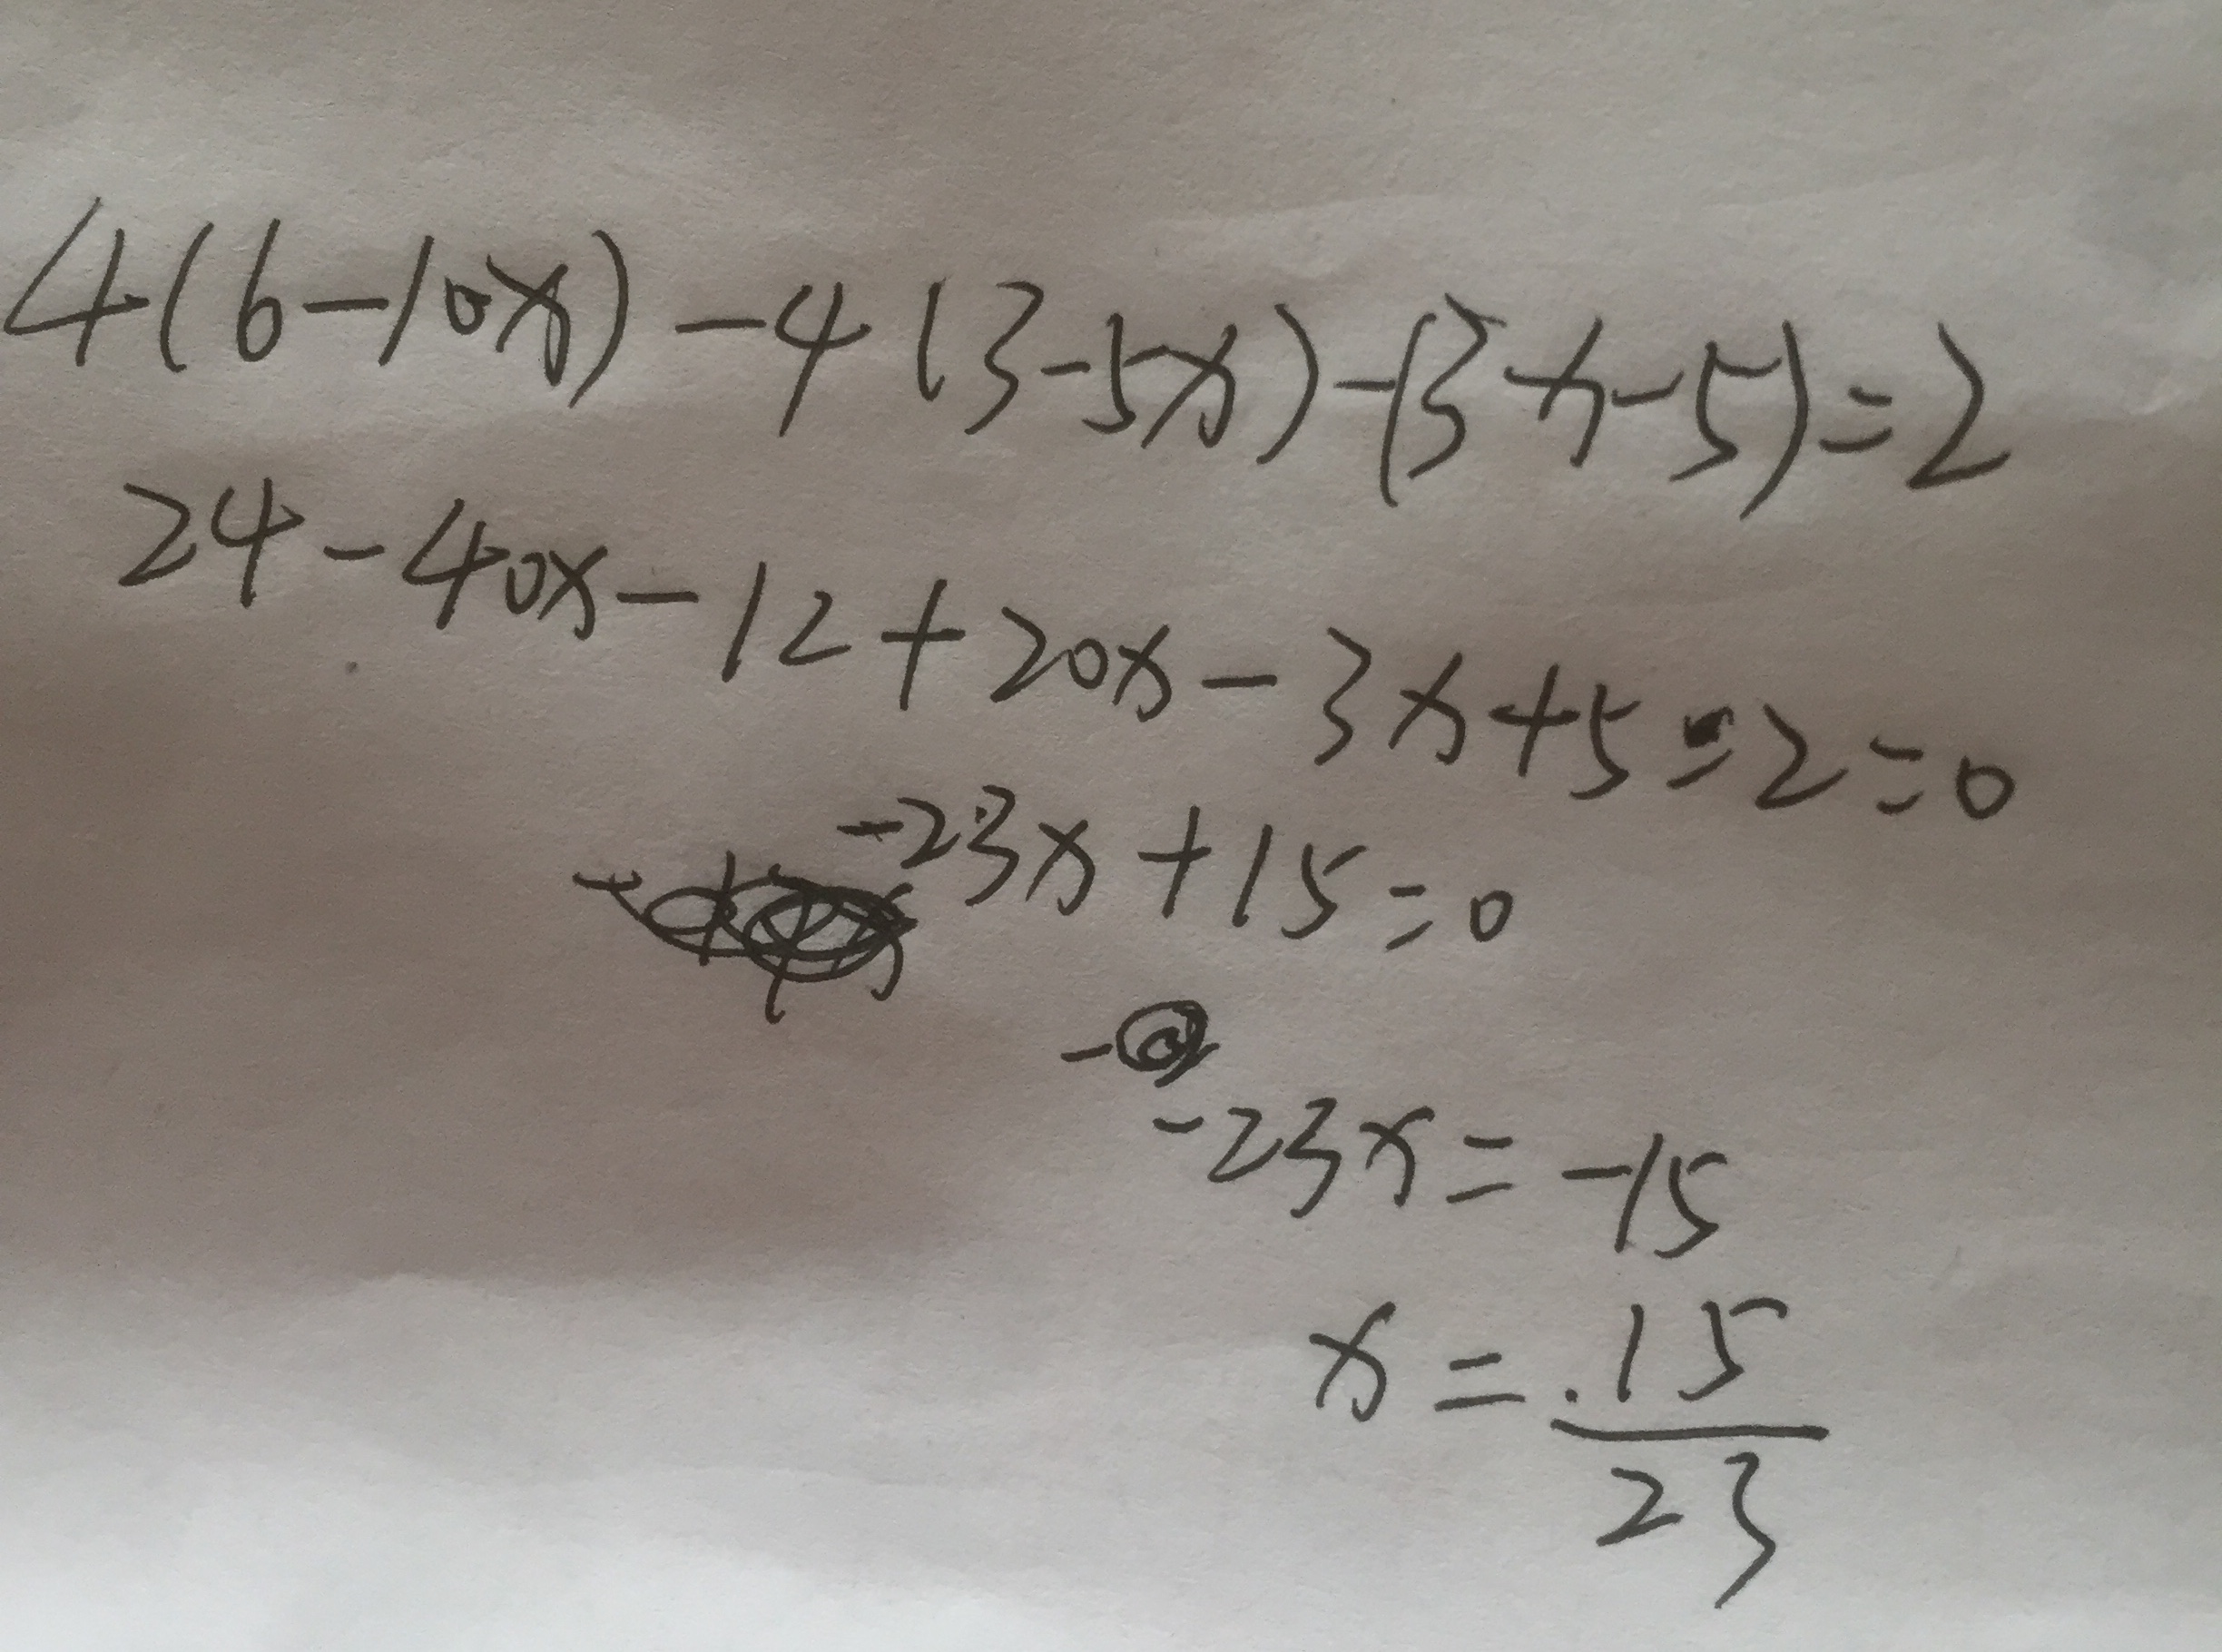 4(6-10x)-4(3-5x)-(3x-5)=2
24-40x-12+20x-3x+5-2=0
-23x+15=0
-23x=-15
x=15/23